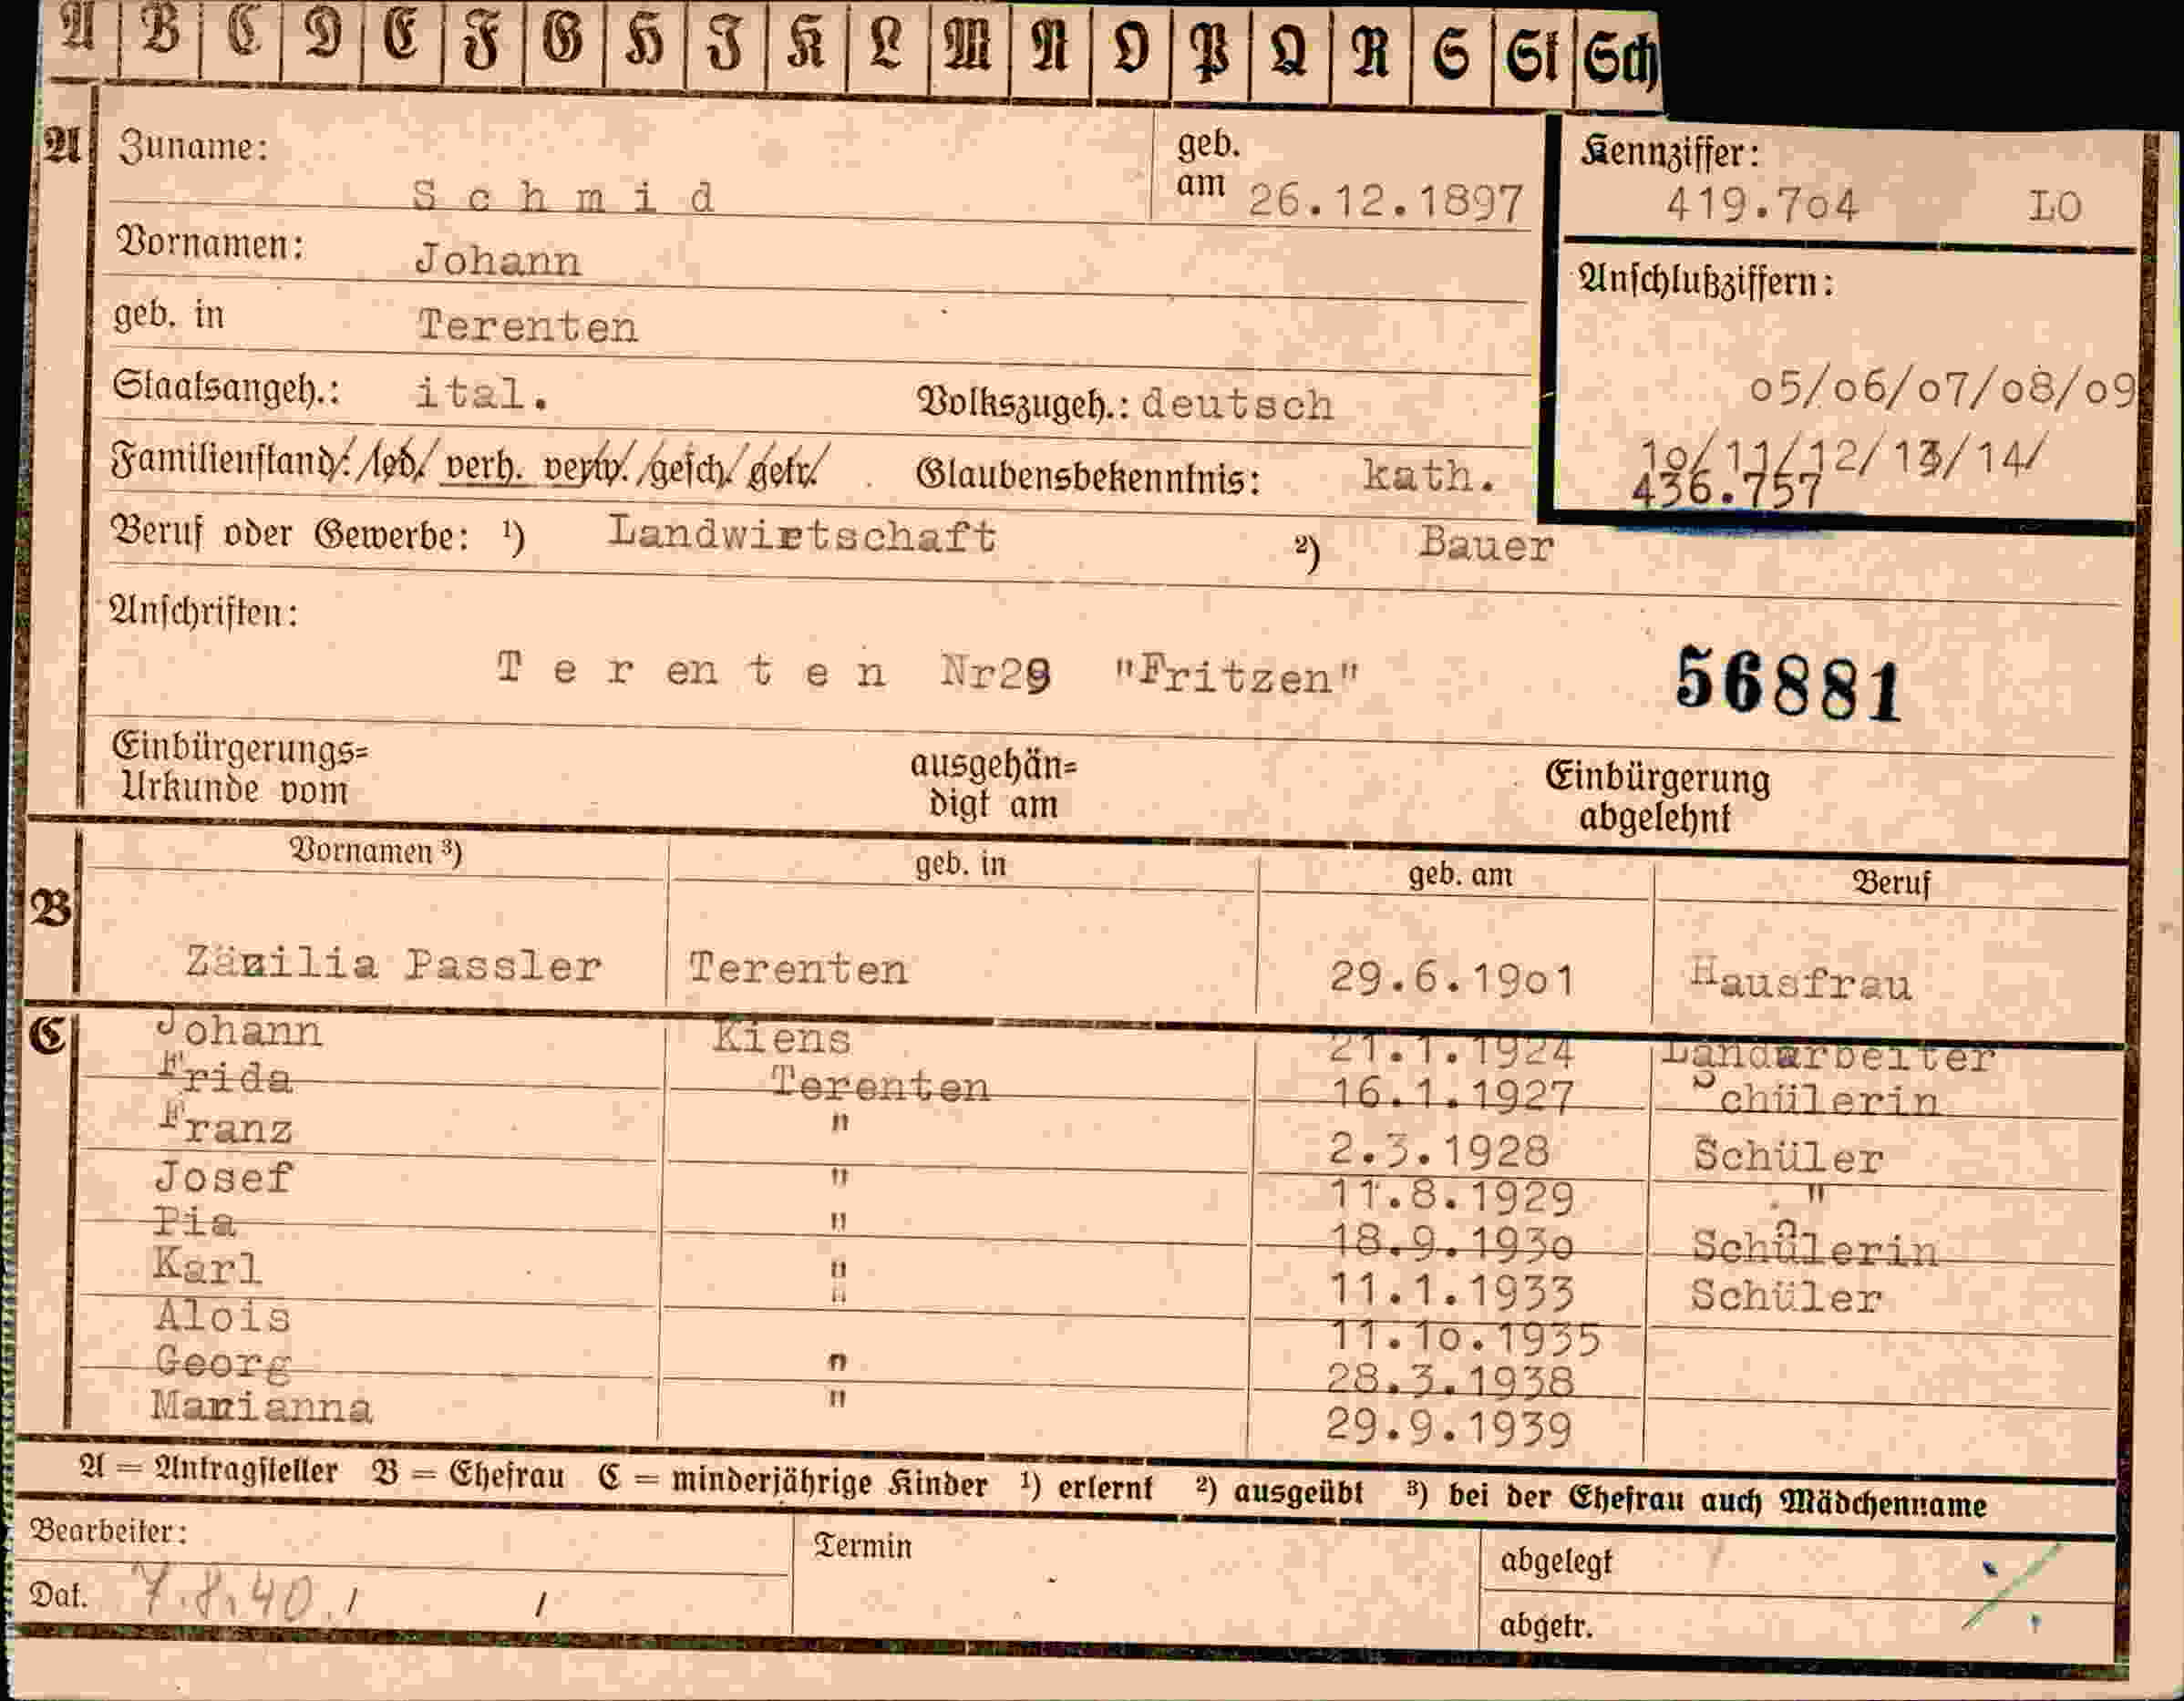 A B C D E F G H I K L M N O P Q R S St Sch
A Zuname: Schmid geb. am 26.12.1897 Kennziffer: 419.7o4 LO
Vornamen: Johann Anschlußziffern:
geb. in Terenten
Staatsangeh.: ital. Volkszugeh.: deutsch o5/o6/o7/o8/o9
Familienstand: led. verh. verw. gesch. getr. Glaubensbekenntnis: kath. 1o/11/12/13/14/
436.757
Beruf oder Gewerbe: ¹) Landwirtschaft ²) Bauer
Anschriften:
Terenten Nr29 "Fritzen" 56881
Einbürgerungs= ausgehän= Einbürgerung
Urkunde vom digt am abgelehnt
Vornamen ³) geb. in geb. am Beruf
B
Zäzilia Passler Terenten 29.6.19o1 Hausfrau
C Johann Kiens 21.1.1924 Landarbeiter
Frida Terenten 16.1.1927 Schülerin
Franz " 2.3.1928 Schüler
Josef " 11.8.1929 "
Pia " 18.9.193o Schülerin
Karl " 11.1.1933 Schüler
Alois " 11.1o.1935
Georg " 28.3.1938
Marianna " 29.9.1939
A = Antragsteller B = Ehefrau C = minderjährige Kinder ¹) erlernt ²) ausgeübt ³) bei der Ehefrau auch Mädchenname
Bearbeiter: Termin abgelegt
Dat. 7.8.40. / / abgetr.